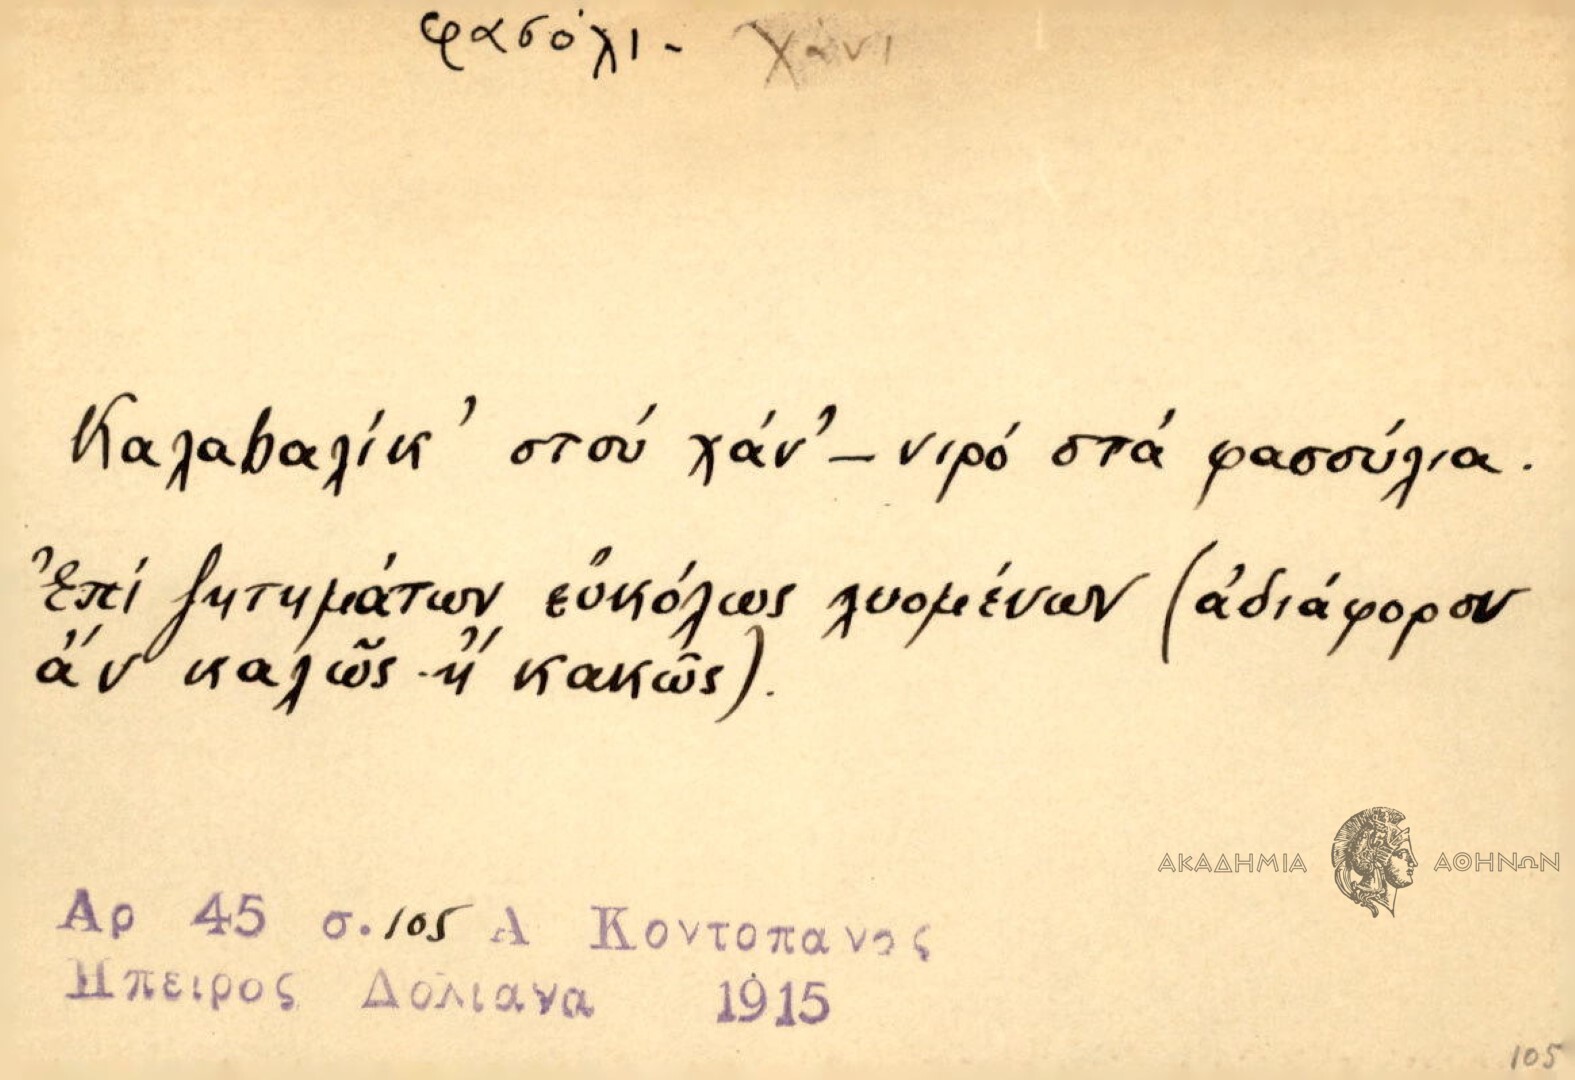 φασόλι - χάνι
Καλαbαλίκ' στού χάν' – νιρό στά φασσύλια.
Ἐπί ζητημάτων εὐκόλως λυομένων (ἀδιάφορον
ἄν καλῶς ἤ κακῶς).
ΑΚΑΔΗΜΙΑ ΑΘΗΝΩΝ
Αρ 45 σ. 105 Α Κοντοπανος
Ηπειρος Δολιανα 1915
105